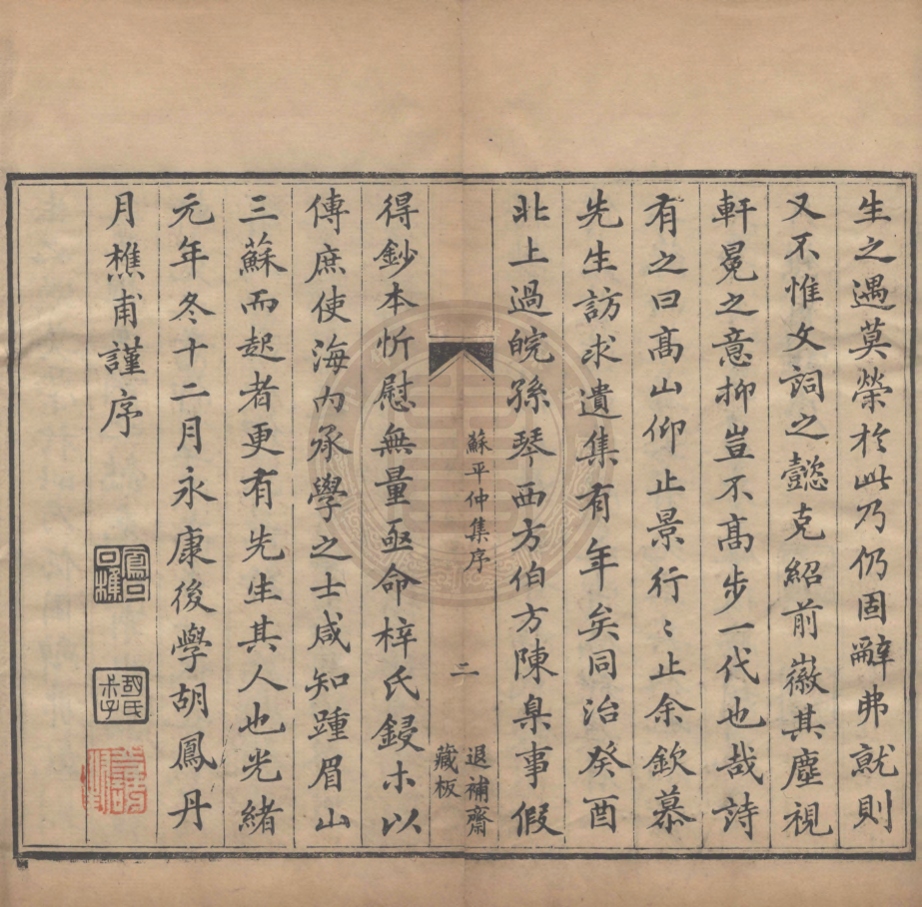 生之遇莫榮於此乃仍固辭弗就則
又不惟文詞之懿克紹前徽其塵視
軒冕之意抑豈不髙步一代也哉詩
有之曰髙山仰止景行﹕止余欽慕
先生訪求遺集有年矣同治癸酉
北上過皖孫琴西方伯方陳臬事假
蘇平仲集序
二
退補齋
藏板
得鈔本忻慰無量亟命梓氏鋟木以
傳庶使海內承學之士咸知踵眉山
三蘇而起者更有先生其人也光緒
元年冬十二月永康後學胡鳳丹
月樵甫謹序
胡氏